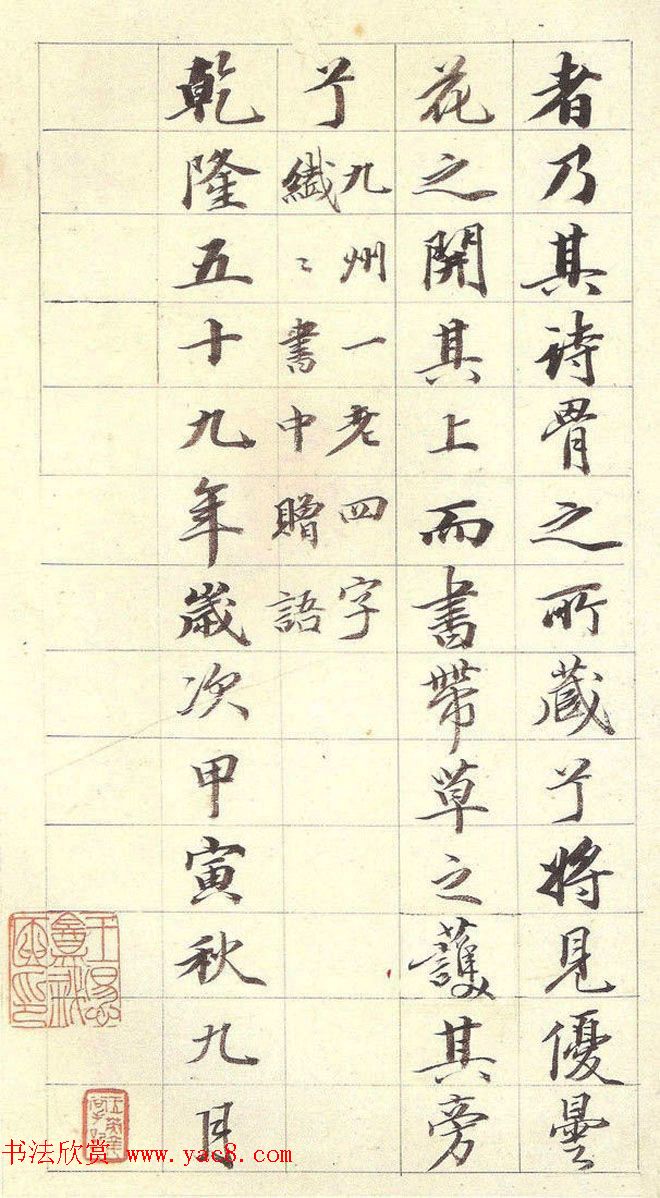 者乃其詩骨之所蔵兮将見優曇
花之開其上而書帶草之護其旁
兮
九州一老四字
纎〻書中贈語
乾隆五十九年歲次甲寅秋九月
书法欣赏 www.yac8.com